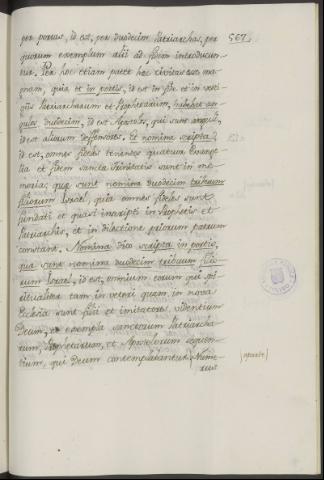 per portas, id est, per duodecim Patriarchas, per
567.
quorum exemplum alii ad fidem introducun-
tur. Per hoc etiam patet hac civitas est ma-
gnam, quia et in portis, id est in fide et in vesti-
giis Patriarcharum et Prophetarum, habet an-
gulos duodecim, id est Apostolos, qui sunt anguli,
id est aliorum deffensores. Et nomina scripta,
id est, omnes fideles tenentes quatuor Evange-
lia et fidem sancta Trinitatis sunt in me-
moria; qua sunt nomina duodecim tribuum
filiorum Israel, quia omnes fideles sunt
fundati et quasi inscripti in Prophetis et
Patriarchis, et in dilectione priorum patrum
constant. Nomina dico scripta in portis,
qua sunt nomina duodecim tribuum filio-
rum Israel, id est, omnium eorum qui spi-
ritualiter tam in veteri quem in nova
Ecclesia sunt filii et imitatores, videntium
Deum, et exempla sanctorum Patriarcha-
rum, Prophetarum, et Apostolorum sequen-
tium, qui Deum contemplabantur. Nume-
rus